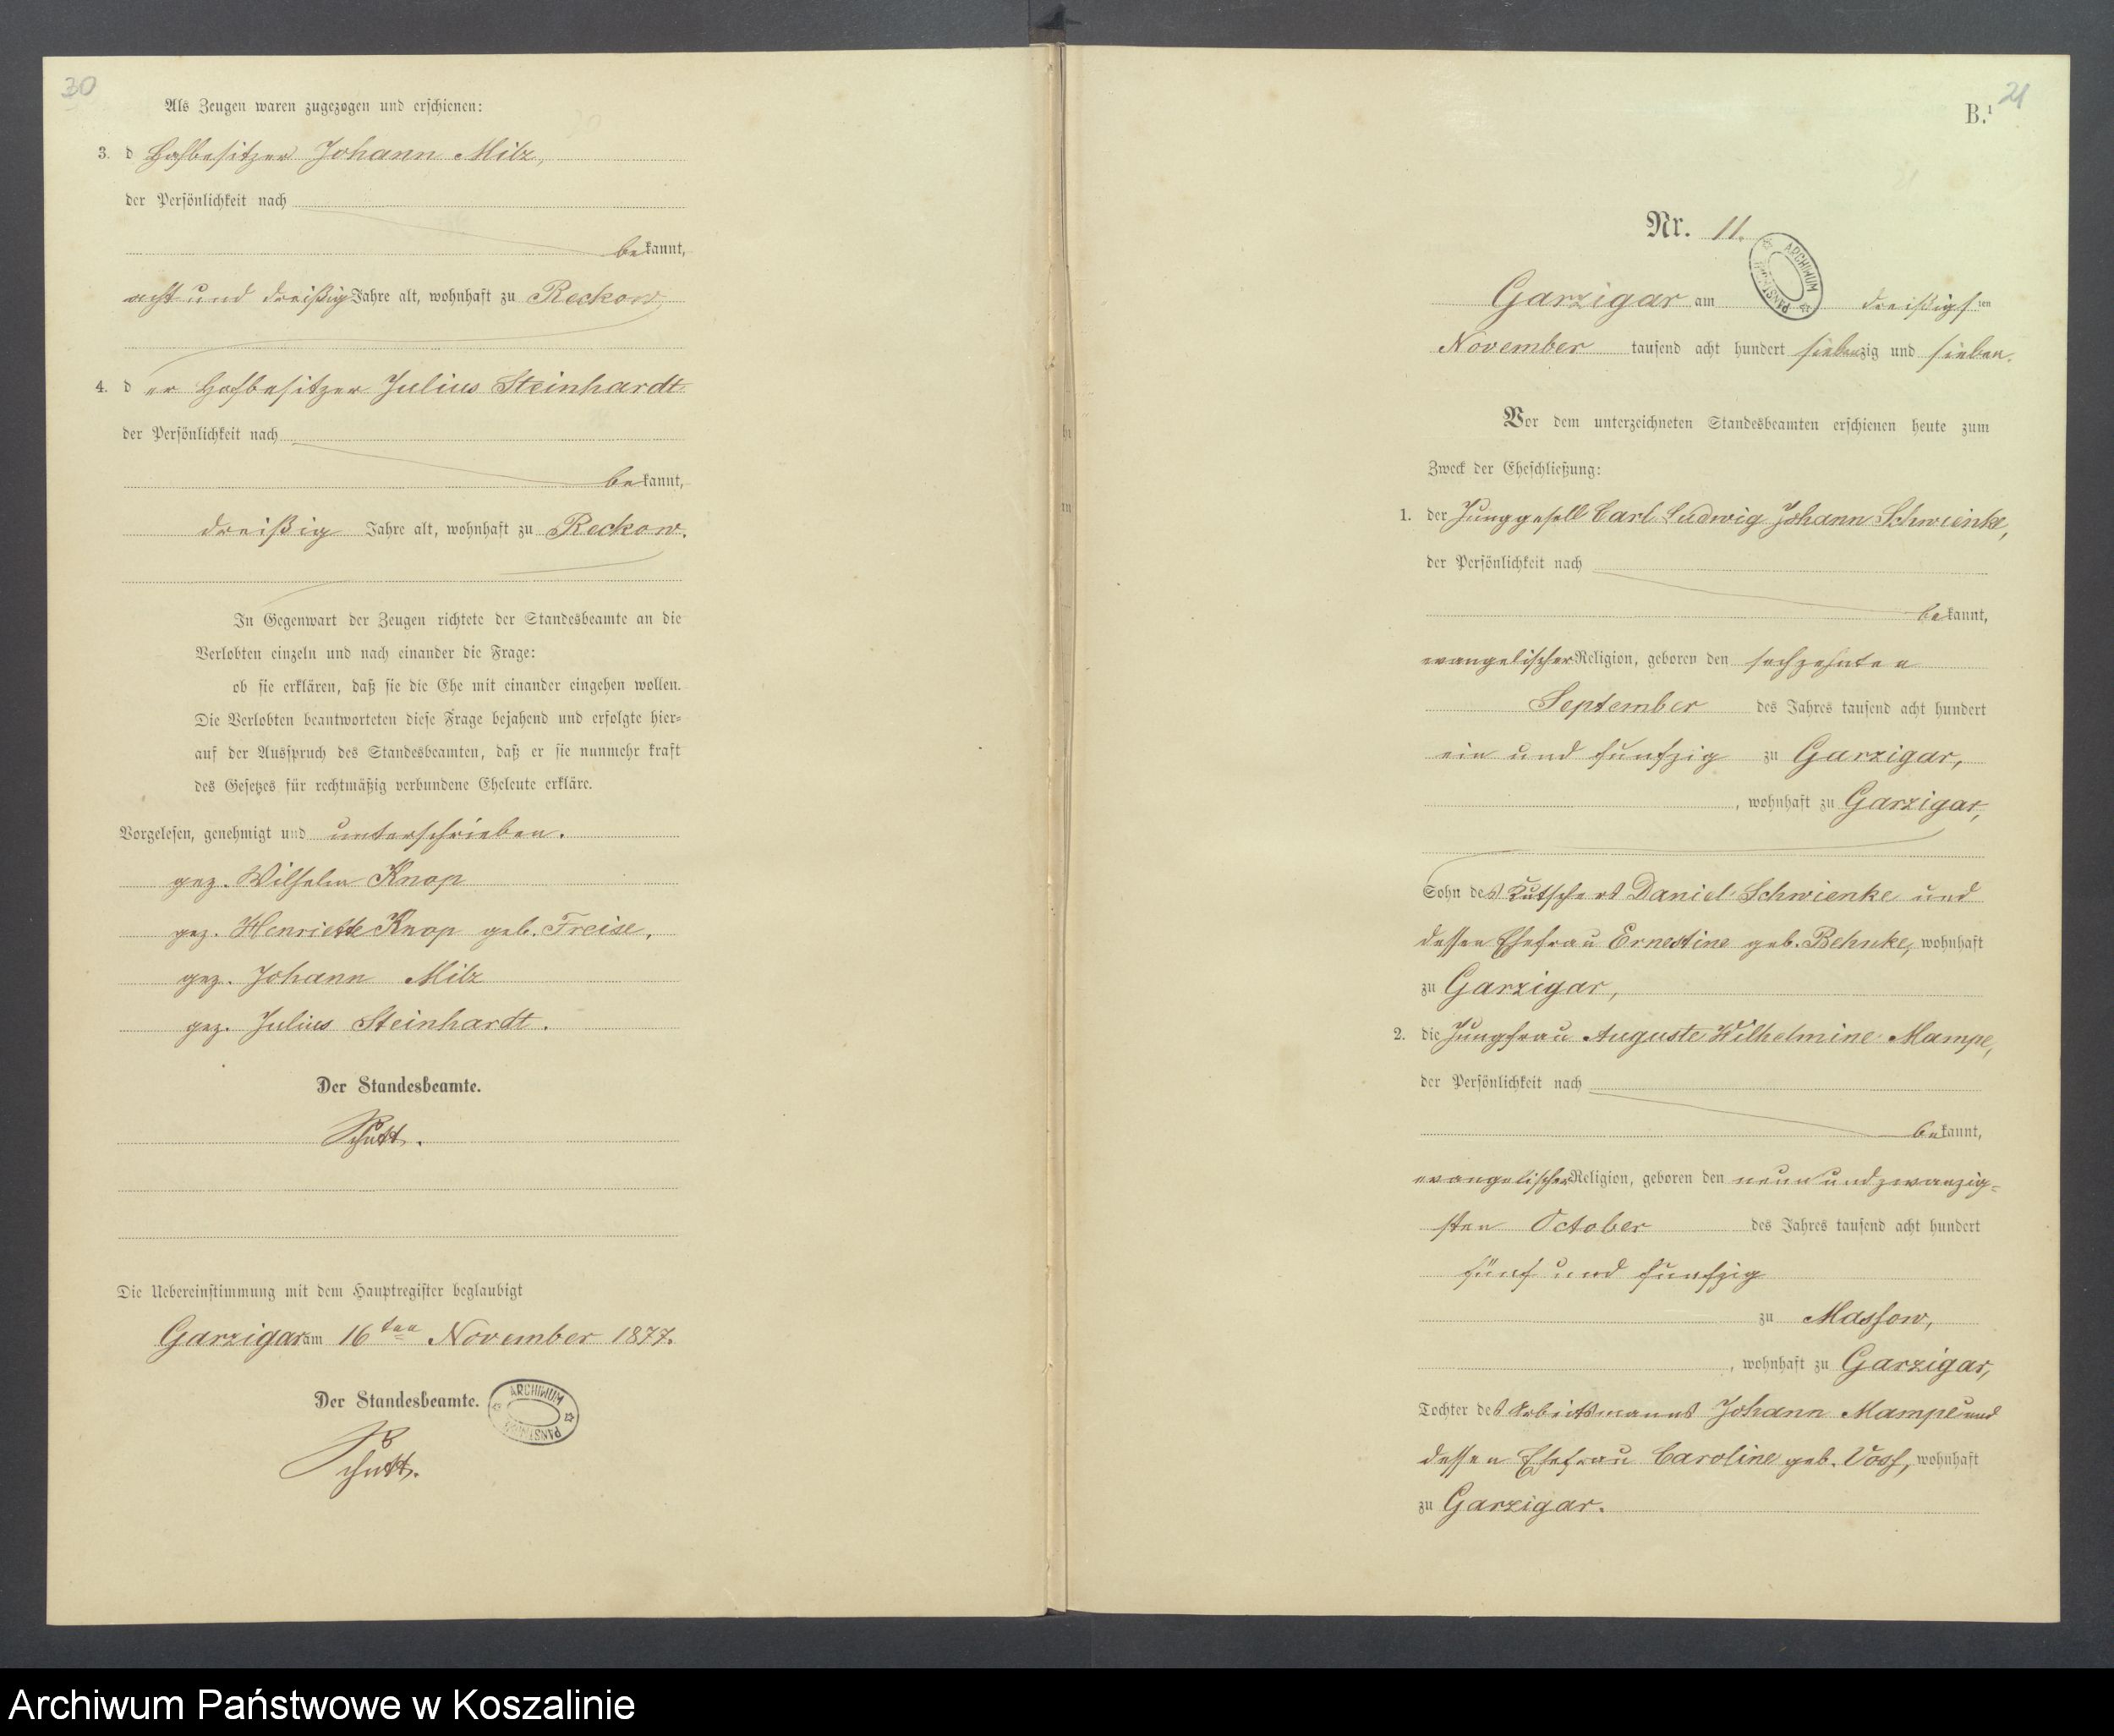 30
Als Zeugen waren zugezogen und erschienen:
3. d Hofbesitzer Johann Milz,
der Persönlichkeit nach
bekannt,
acht und dreißig Jahre alt, wohnhaft zu Reckow
4. d er Hofbesitzer Julius Steinhardt
der Persönlichkeit nach
bekannt,
dreißig Jahre alt, wohnhaft zu Reckow.
In Gegenwart der Zeugen richtete der Standesbeamte an die
Verlobten einzeln und nach einander die Frage:
ob sie erklären, daß sie die Ehe mit einander eingehen wollen.
Die Verlobten beantworteten diese Frage bejahend und erfolgte hier-
auf der Ausspruch des Standesbeamten, daß er sie nunmehr kraft
des Gesetzes für rechtmäßig verbundene Eheleute erkläre.
Vorgelesen, genehmigt und unterschrieben.
gez. Wilhelm Knop
gez. Henriette Knop geb. Freise.
gez. Johann Milz
gez. Julius Steinhardt.
Der Standesbeamte.
Schütt.
Die Uebereinstimmung mit dem Hauptregister beglaubigt
Garzigar am 16ten November 1877.
Der Standesbeamte.
ARCHIWUM PAŃSTWOWE
Schütt.
21
B.¹
Nr. 11.
ARCHIWUM PAŃSTWOWE
Garzigar am dreißigsten
November tausend acht hundert siebenzig und sieben.
Vor dem unterzeichneten Standesbeamten erschienen heute zum
Zweck der Eheschließung:
1. der Junggesell Carl Ludwig Johann Schwienke,
der Persönlichkeit nach
bekannt,
evangelischer Religion, geboren den sechzehnten
September des Jahres tausend acht hundert
ein und funfzig zu Garzigar,
, wohnhaft zu Garzigar,
Sohn des Kutschers Daniel Schwienke und
dessen Ehefrau Ernestine geb. Behnke, wohnhaft
zu Garzigar,
2. die Jungfrau Auguste Wilhelmine Mampe,
der Persönlichkeit nach
bekannt,
evangelischer Religion, geboren den neun und zwanzig-
sten October des Jahres tausend acht hundert
fünf und funfzig
zu Massow,
, wohnhaft zu Garzigar,
Tochter des Arbeitsmanns Johann Mampe und
dessen Ehefrau Caroline geb. Voss, wohnhaft
zu Garzigar.
Archiwum Państwowe w Koszalinie